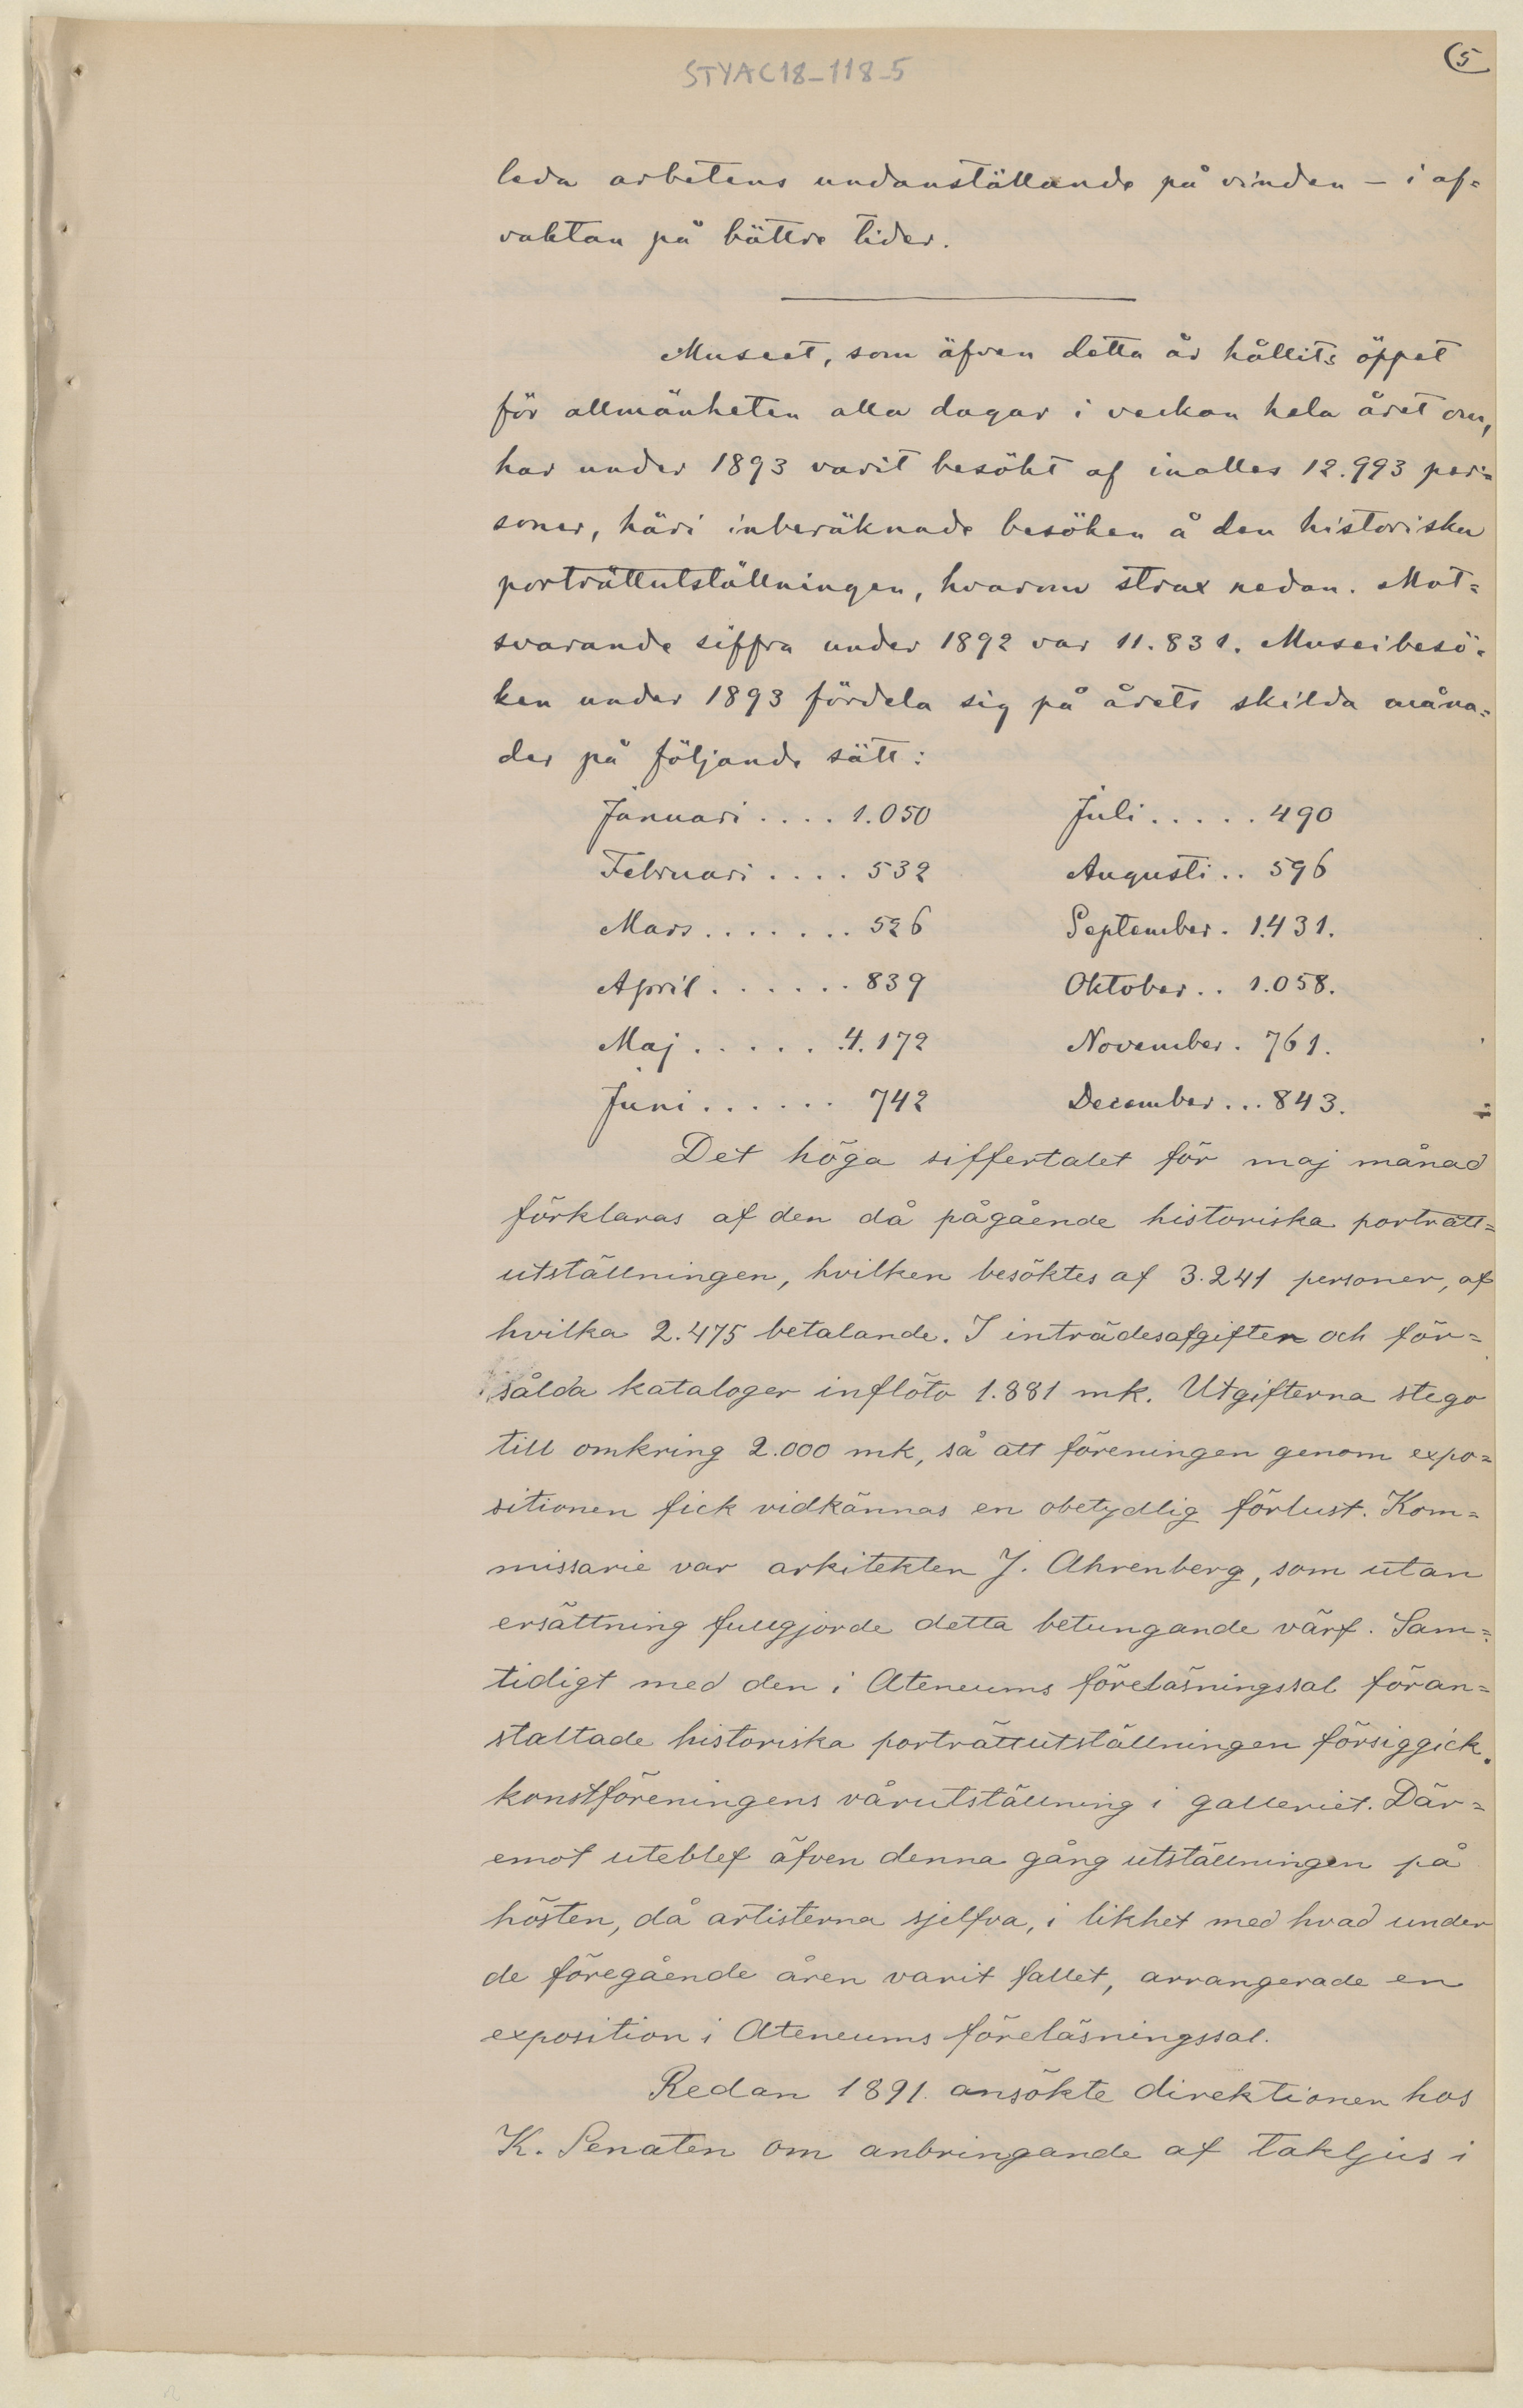 STYAC18-118-5
(5
leda arbetens undanställande på vinden – i af=
vaktan på bättre tider.
Museet, som äfven detta år hållits öppet
för allmänheten alla dagar i veckan hela året om,
har under 1893 varit besökt af inalles 12.993 per=
soner, häri inberäknade besöken å den historiska
porträttutställningen, hvarom strax nedan. Mot=
svarande siffra under 1892 var 11.831. Museibesö=
ken under 1893 fördela sig på årets skilda måna=
der på följande sätt:
Januari .... 1.050 Juli ..... 490
Februari .... 532 Augusti .. 596
Mars ....... 526 September . 1.431.
April ...... 839 Oktober .. 1.058.
Maj ...... 4.172 November . 761.
Juni ...... 742 December ... 843.
Det höga siffertalet för maj månad
förklaras af den då pågående historiska porträtt=
utställningen, hvilken besöktes af 3.241 personer, af
hvilka 2.475 betalande. I inträdesafgifter och för=
sålda kataloger inflöto 1.881 mk. Utgifterna stego
till omkring 2.000 mk, så att föreningen genom expo=
sitionen fick vidkännas en obetydlig förlust. Kom=
missarie var arkitekten J. Ahrenberg, som utan
ersättning fullgjorde detta betungande värf. Sam=
tidigt med den i Ateneums föreläsningssal föran=
staltade historiska porträttutställningen försiggick
konstföreningens vårutställning i galleriet. Där=
emot uteblef äfven denna gång utställningen på
hösten, då artisterna sjelfva, i likhet med hvad under
de föregående åren varit fallet, arrangerade en
exposition i Ateneums föreläsningssal.
Redan 1891 ansökte direktionen hos
K. Senaten om anbringande af takljus i